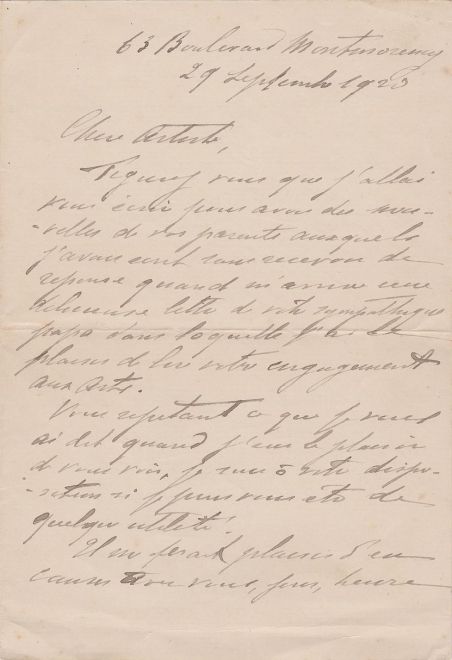 63 Boulevard Montmorency
29 Septembre 1920
Chère Artiste,
Figurez vous que j'allais
vous écrire pour avoir des nou-
-velles de vos parents auxquels
j'avais écrit sans recevoir de
réponse quand m'arrive une
délicieuse lettre de votre sympathique
papa dans laquelle j'ai le
plaisir de lire votre engagement
aux Arts.
Vous répétant ce que je vous
ai dit quand j'eus le plaisir
de vous voir, je suis à votre dispo-
-sition si je puis vous être de
quelque utilité!
Il me ferait plaisir d'en
causer avec vous, jour, heure